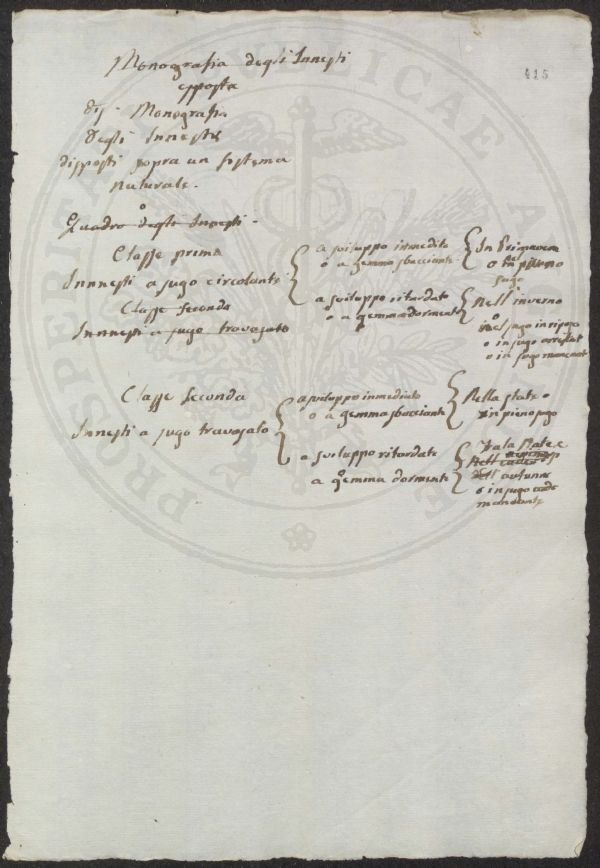 415
Monografia degli Innesti
esposta
Monografia
degli Innesti
disposti sopra un sistema
naturale.
Quadro degli Innesti.
Classe prima
Innnesti a sugo circolante
a sviluppo immedito
o a gemma sbocciante
In Primavera
o in pieno
sugo
Classe seconda
Innnesti a sugo travasato
a sviluppo ritardato
o a gemma dormente
Nell' inverno
sugo in riposo
o in sugo arrestat
o in sugo mancant
Classe Seconda
Innesti a sugo travasato
a sviluppo immediato
o a gemma sbocciante
Nella state o
in pieno sugo
a sviluppo ritardato
a gemma dormente
la state e
dell' autunno
o in sugo